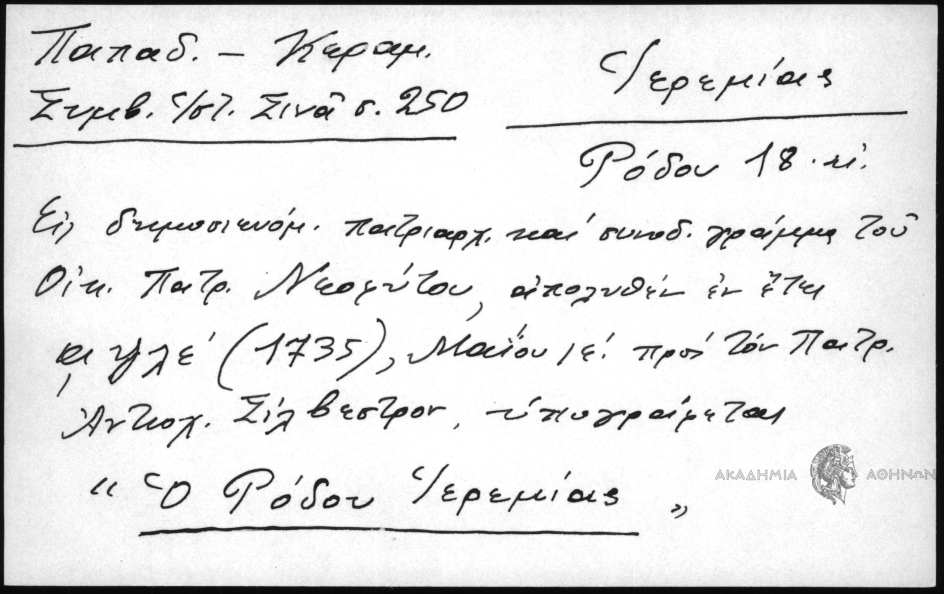 Παπαδ. – Κεραμ.
Συμβ. Ἱστ. Σινᾶ σ. 250
Ἱερεμίας
Ρόδου 18. αἰ.
Εἰς δημοσιευόμ. πατριαρχ. καί συνοδ. γράμμα τοῦ
Οἰκ. Πατρ. Νεοφύτου, ἀπολυθέν ἐν ἔτει
͵αψλε΄ (1735), Μαΐου ιε΄ πρός τόν Πατρ.
Ἀντιοχ. Σίλβεστρον, ὑπογράφεται
“ Ὁ Ρόδου Ἱερεμίας „
ΑΚΑΔΗΜΙΑ ΑΘΗΝΩΝ